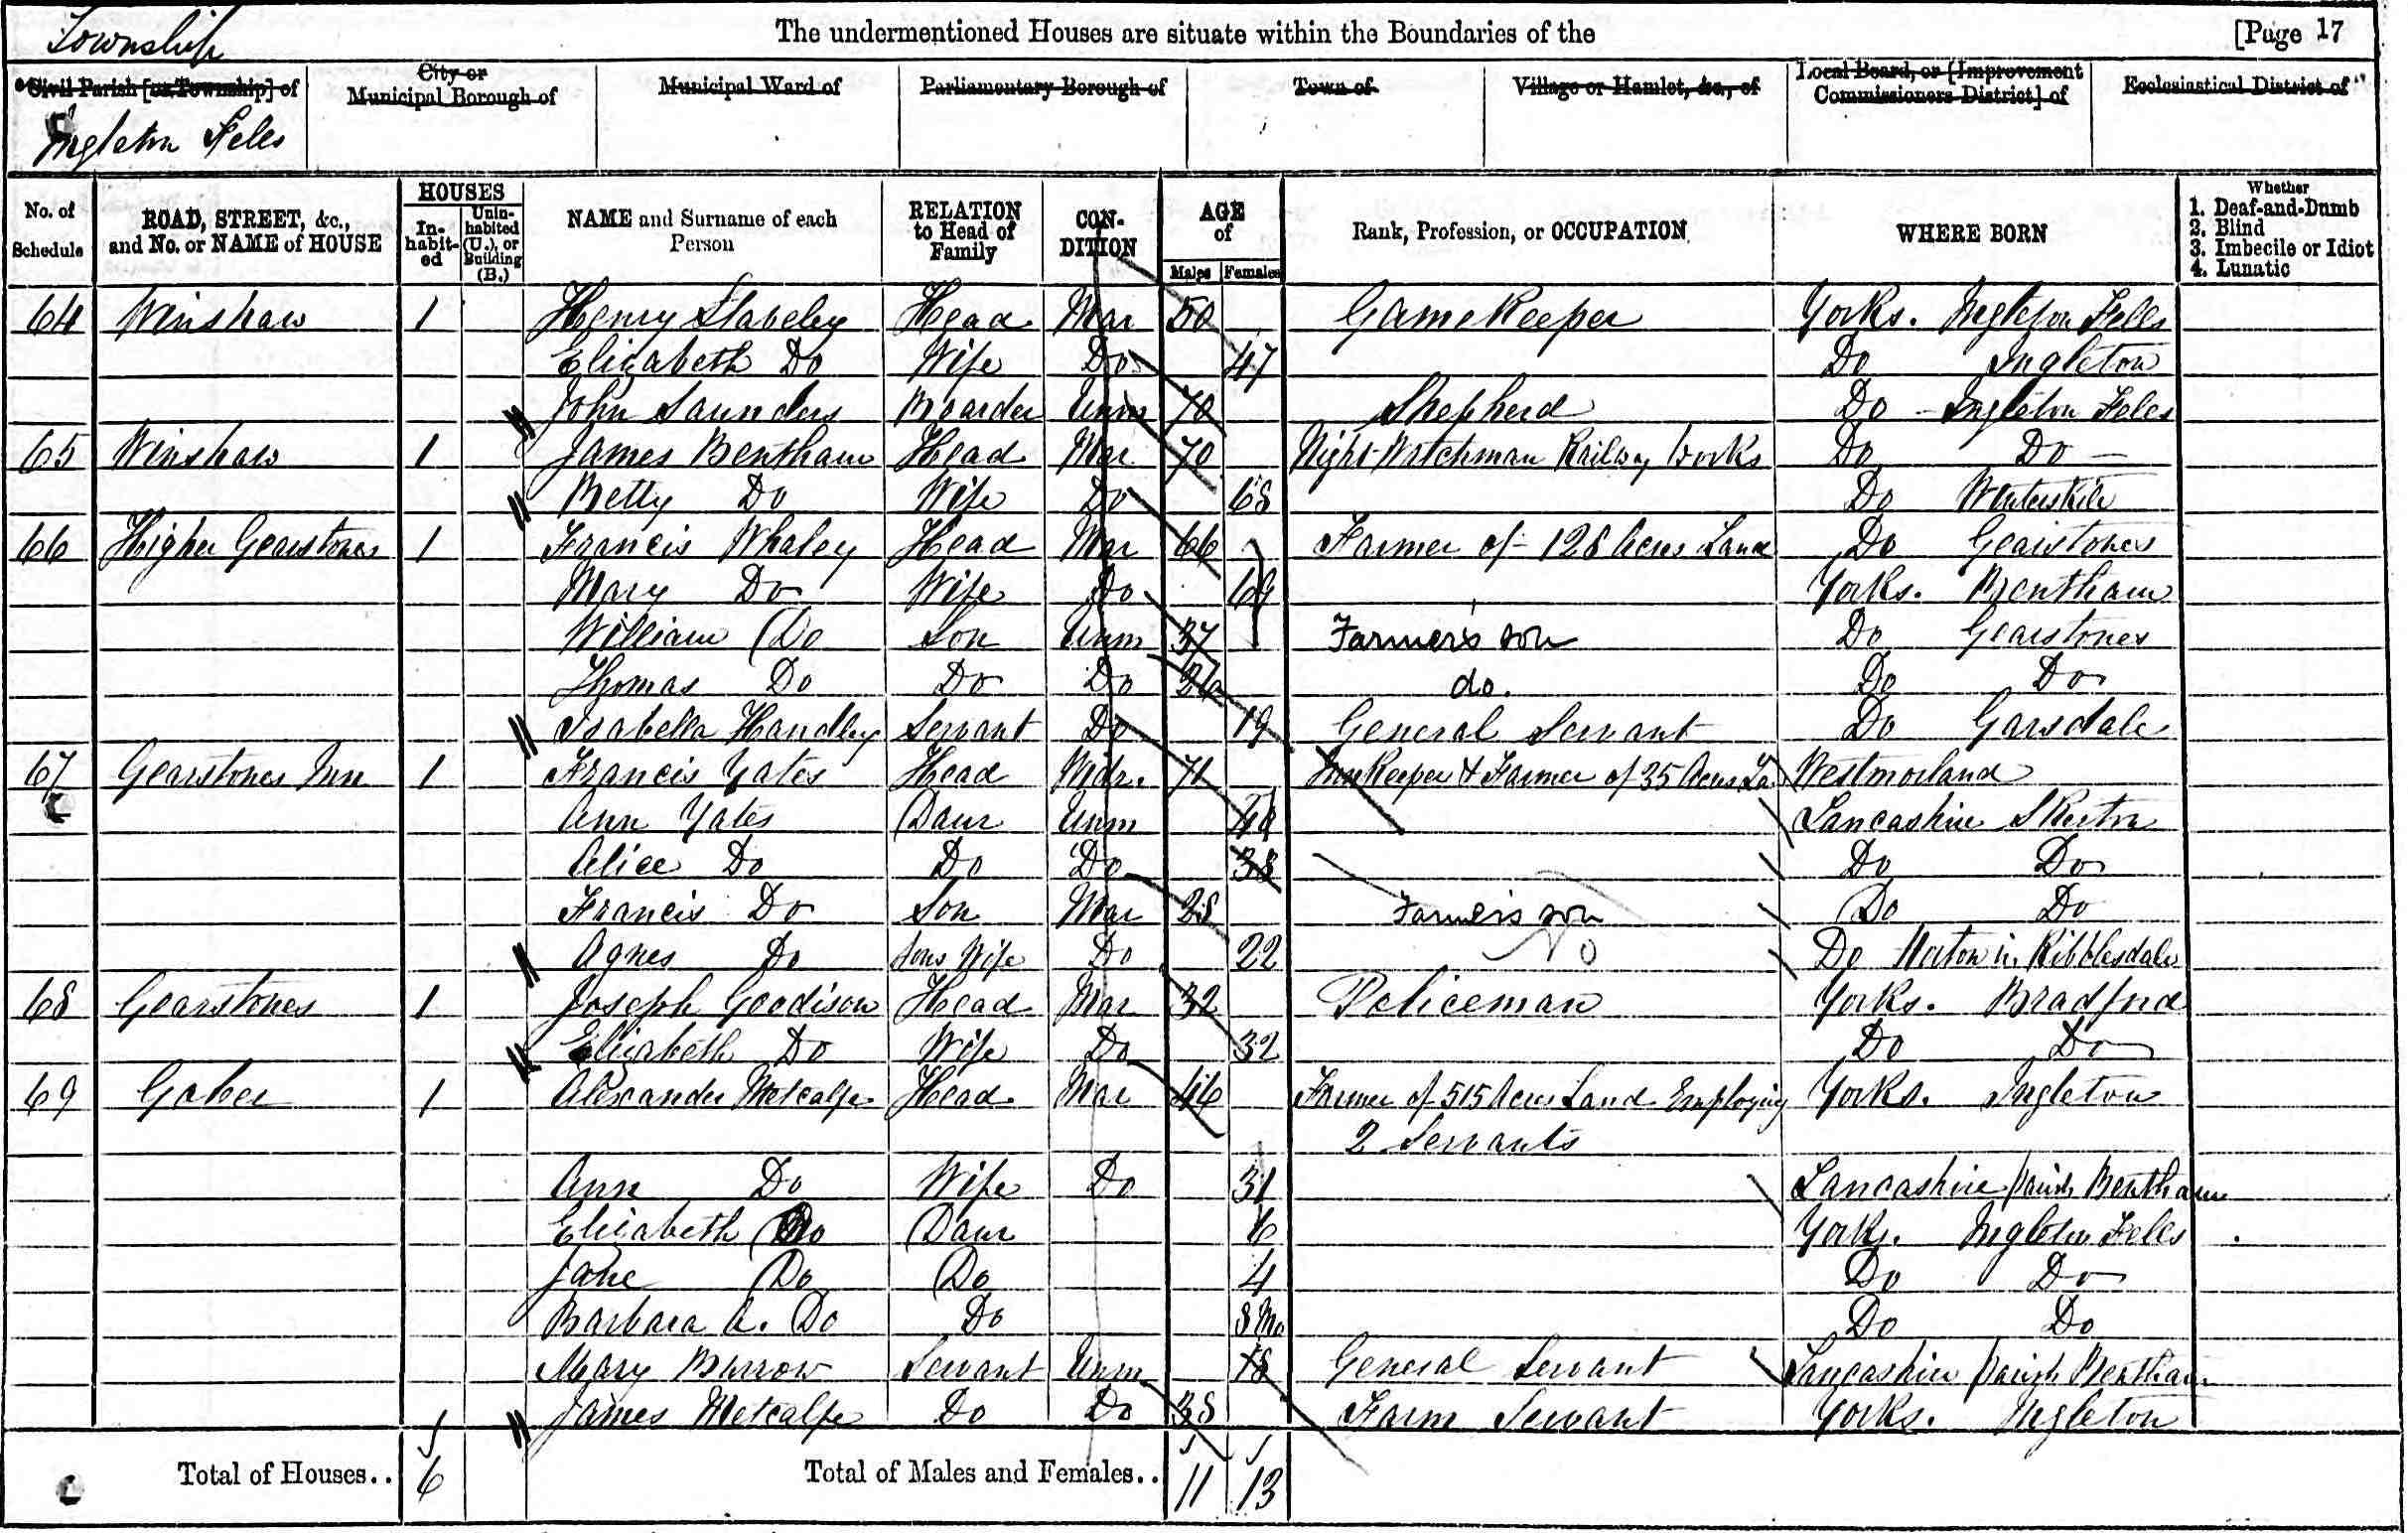 Township The undermentioned Houses are situate within the Boundaries of the [Page 17
Civil Parish [or Township] of City or Municipal Borough of Municipal Ward of Parliamentary Borough of Town of Village or Hamlet, &c., of Local Board, or [Improvement Commissioners District] of Ecclesiastical District of
Ingleton Feles
No. of Schedule ROAD, STREET, &c., and No. or NAME of HOUSE HOUSES Inhabited Uninhabited (U.), or Building (B.) NAME and Surname of each Person RELATION to Head of Family CONDITION AGE of Males Females Rank, Profession, or OCCUPATION WHERE BORN Whether 1. Deaf-and-Dumb 2. Blind 3. Imbecile or Idiot 4. Lunatic
64 Winshaw 1 Henry Slaveley Head Mar 50 Gamekeeper Yorks. Ingleton Fells
Elizabeth Do Wife Do 47 Do Ingleton
John Saunders Boarder Unm 70 Shepherd Do - Ingleton Feles
65 Winshaw 1 James Bentham Head Mar 70 Night Watchman Railway Works Do Do -
Betty Do Wife Do 68 Do Winterskile
66 Higher Gearstones 1 Francis Whaley Head Mar 66 Farmer of 128 Acres Land Do Gearstones
Mary Do Wife Do 69 Yorks. Bentham
William Do Son Unm 37 Farmer's son Do Gearstones
Thomas Do Do Do do. Do Do
Isabella Handley Servant Do 19 General Servant Do Garsdale
67 Gearstones Inn 1 Francis Yates Head Widr. 71 Innkeeper & Farmer of 35 Acres La Westmorland
Ann Yates Daur Unm Lancashire Skerton
Alice Do Do Do 38 Do Do
Francis Do Son Mar 28 Farmer's son Do Do
Agnes Do Sons Wife Do 22 Do Horton in Ribblesdale
68 Gearstones 1 Joseph Goodison Head Mar 32 Policeman Yorks. Bradford
Elizabeth Do Wife Do 32 Do Do
69 Gaber 1 Alexander Metcalfe Head Mar 46 Farmer of 515 Acres Land Employing Yorks. Ingleton
2 Servants
Ann Do Wife Do 31 Lancashire Parish Bentham
Elizabeth Do Daur 6 Yorks. Ingleton Fells
Jane Do Do 4 Do Do
Barbara A. Do Do 8 Mo Do Do
Mary Burrow Servant Unm 18 General Servant Lancashire Parish Bentham
James Metcalfe Do Do 38 Farm Servant Yorks. Ingleton
Total of Houses.. 6 Total of Males and Females.. 11 13